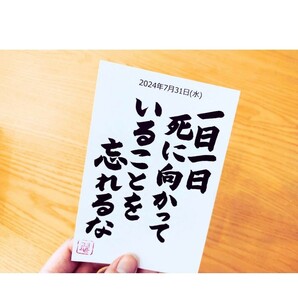 2024年7月31日(水)
一日一日
死に向かって
いることを
忘れるな